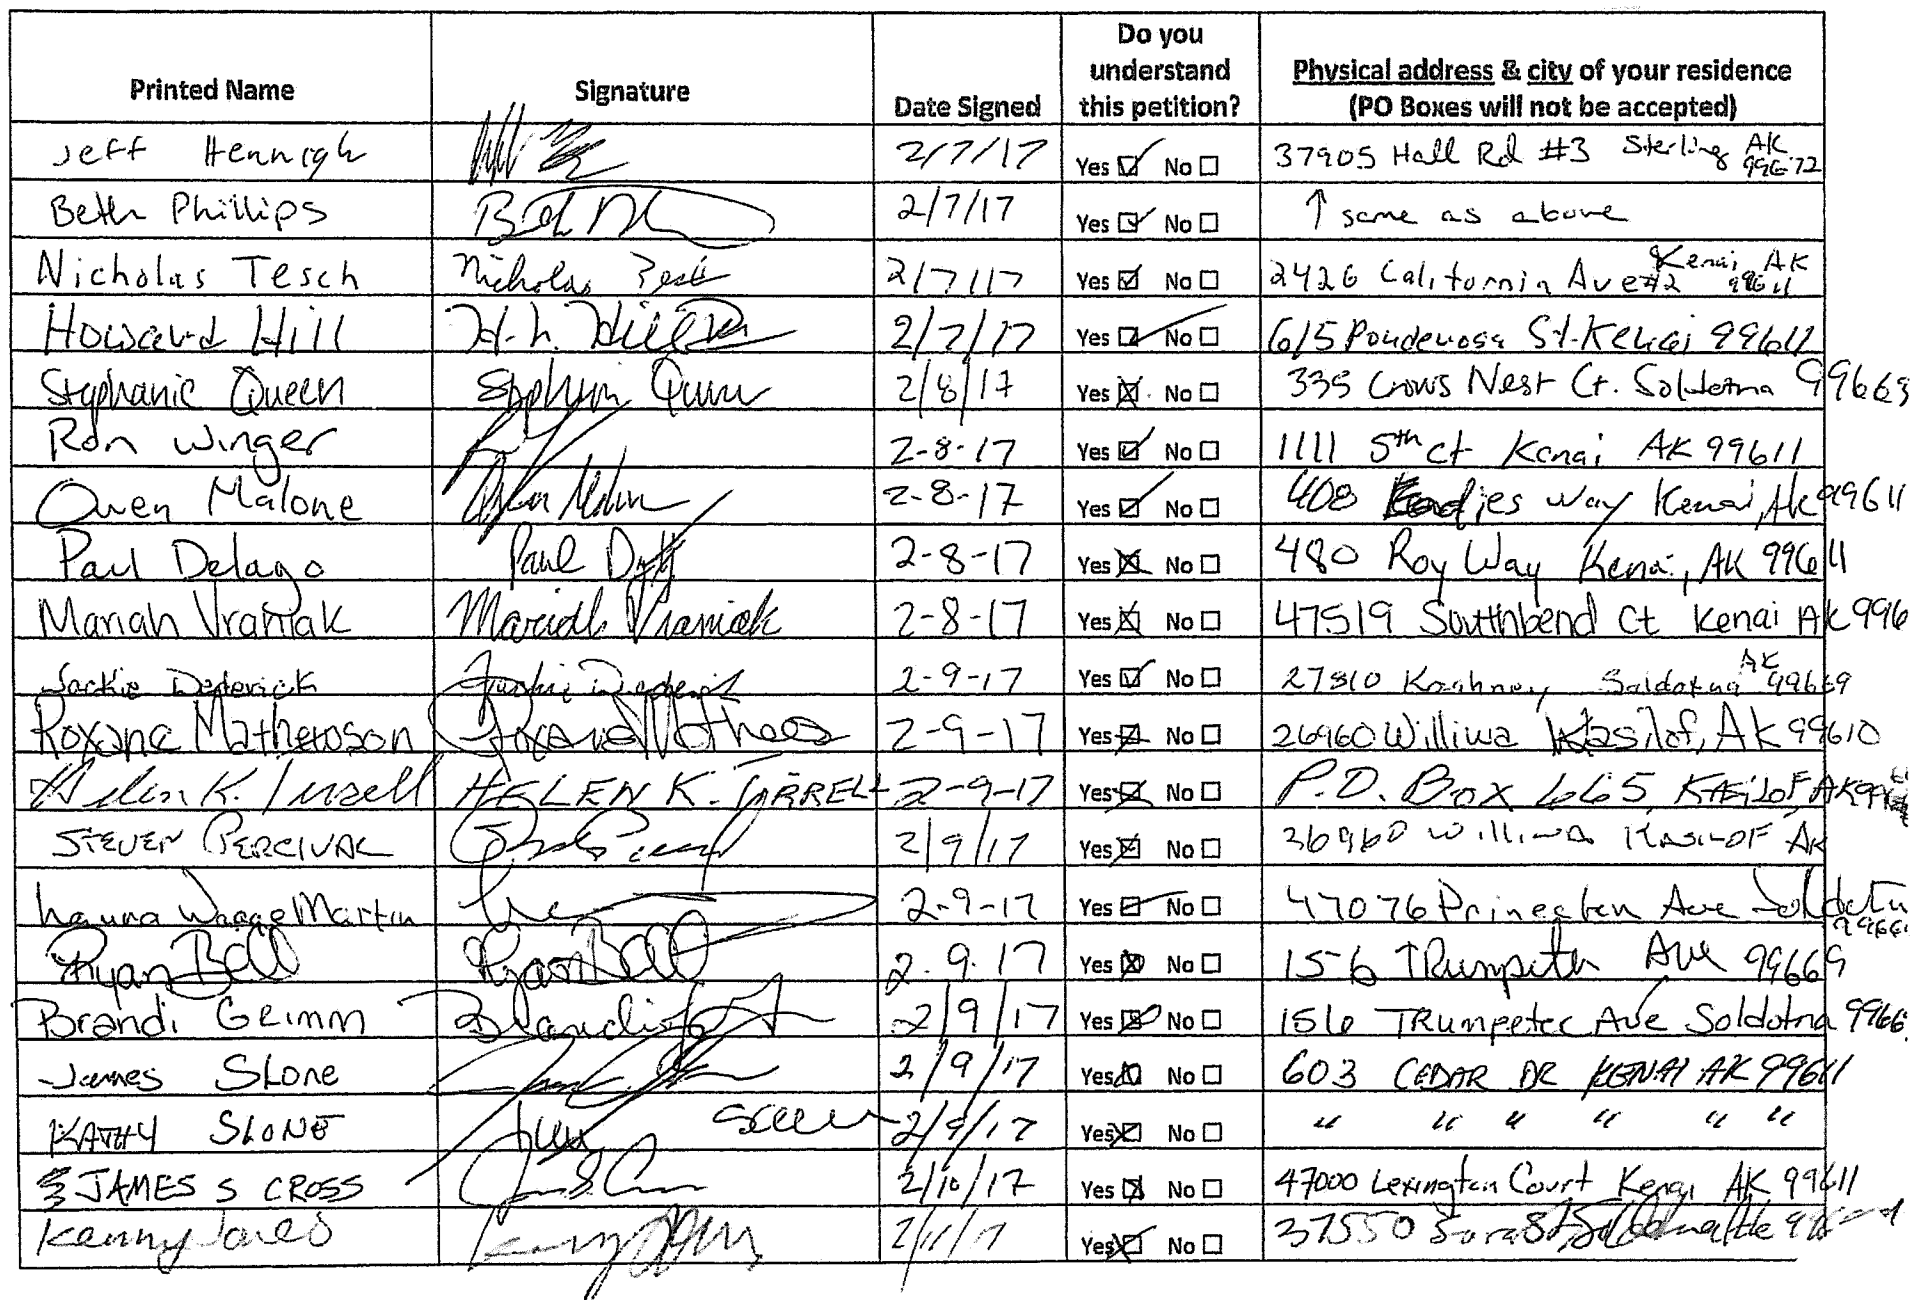 Printed Name Signature Date Signed Do you understand this petition? Physical address & city of your residence (PO Boxes will not be accepted)
Jeff Hennigh 2/7/17 Yes ☑ No ☐ 37905 Hall Rd #3 Sterling AK 99672
Beth Phillips 2/7/17 Yes ☑ No ☐ ↑ same as above
Nicholas Tesch Nicholas Tesch 2/7/17 Yes ☑ No ☐ 2426 California Ave #2 Kenai AK 99611
Howard Hill H. h. Hill 2/7/17 Yes ☑ No ☐ 615 Ponderosa St. Kenai 99611
Stephanie Queen Stephanie Queen 2/8/17 Yes ☒ No ☐ 335 Crows Nest Ct. Soldotna 99669
Ron Winger 2-8-17 Yes ☑ No ☐ 1111 5th Ct Kenai AK 99611
Owen Malone Owen Malone 2-8-17 Yes ☑ No ☐ 408 Way Kenai, AK 99611
Paul Delago Paul 2-8-17 Yes ☒ No ☐ 480 Roy Way Kenai, AK 99611
Mariah Vraniak Mariah Vraniak 2-8-17 Yes ☒ No ☐ 47519 Southbend Ct Kenai AK 996
Jackie 2-9-17 Yes ☑ No ☐ 27810 Soldotna AK 99669
Roxane Mathewson Roxane 2-9-17 Yes ☑ No ☐ 26960 Williwa Kasilof, AK 99610
Helen K. HELEN K. 2-9-17 Yes ☒ No ☐ P.O. Box 665, KASILOF, AK
STEVEN PERCIVAL 2/9/17 Yes ☒ No ☐ 36960 Williwa KASILOF AK
Martin 2-9-17 Yes ☑ No ☐ 47076 Princeton Ave Soldotn
Ryan Bell Ryan Bell 2.9.17 Yes ☒ No ☐ 156 Ave 99669
Brandi Grimm Brandi 2/9/17 Yes ☒ No ☐ 156 Trumpeter Ave Soldotna 9966
James Slone 2/9/17 Yes ☒ No ☐ 603 CEDAR DR KENAI AK 99611
KATHY SLONE 2/9/17 Yes ☒ No ☐ " " " " " "
JAMES S CROSS 2/10/17 Yes ☒ No ☐ 47000 Lexington Court Kenai AK 99611
Kenny Jones 2/11/17 Yes ☒ No ☐ 37550